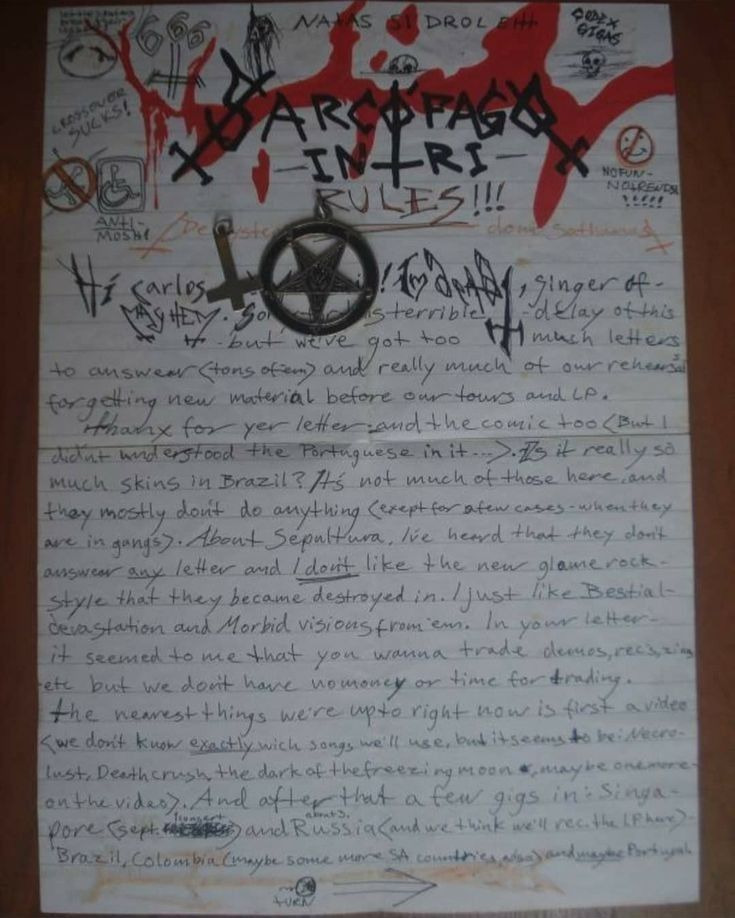 666
NATAS SI DROL
CODEX
GIGAS
CROSSOVER
SUCKS!
SARCÓFAGO
-INRI-
RULES!!!
NO FUN-
NO TRENDS!
!!!!!
ANTI-
MOSH!
Hi Carlos ! I'm DEAD, singer of-
MAYHEM. terrible -delay of this
-but we've got too much letters
to answear (tons of em) and really much of our rehearsals
for getting new material before our tours and LP.
thanx for yer letter and the comic too (But I
didn't understood the Portuguese in it...). Is it really so
much skins in Brazil? It's not much of those here, and
they mostly don't do anything (exept for a few cases-when they
are in gangs). About Sepultura, I've heard that they don't
answear any letter and I don't like the new glamerock-
style that they became destroyed in. I just like Bestial-
devastation and Morbid visions from 'em. In your letter-
it seemed to me that you wanna trade demos, rec's, zines
etc but we don't have no money or time for trading.
the nearest things we're up to right now is first a video
(we don't know exactly wich songs we'll use, but it seems to be: Necro-
lust, Deathcrush, the dark of the freezing moon, maybe one more
on the video). And after that a few gigs in: Singa-
pore (sept. 1 concert) and Russia (about 3. and we think we'll rec. the LP here)-
Brazil, Colombia (maybe some more SA countries also) and maybe Portugal
TURN